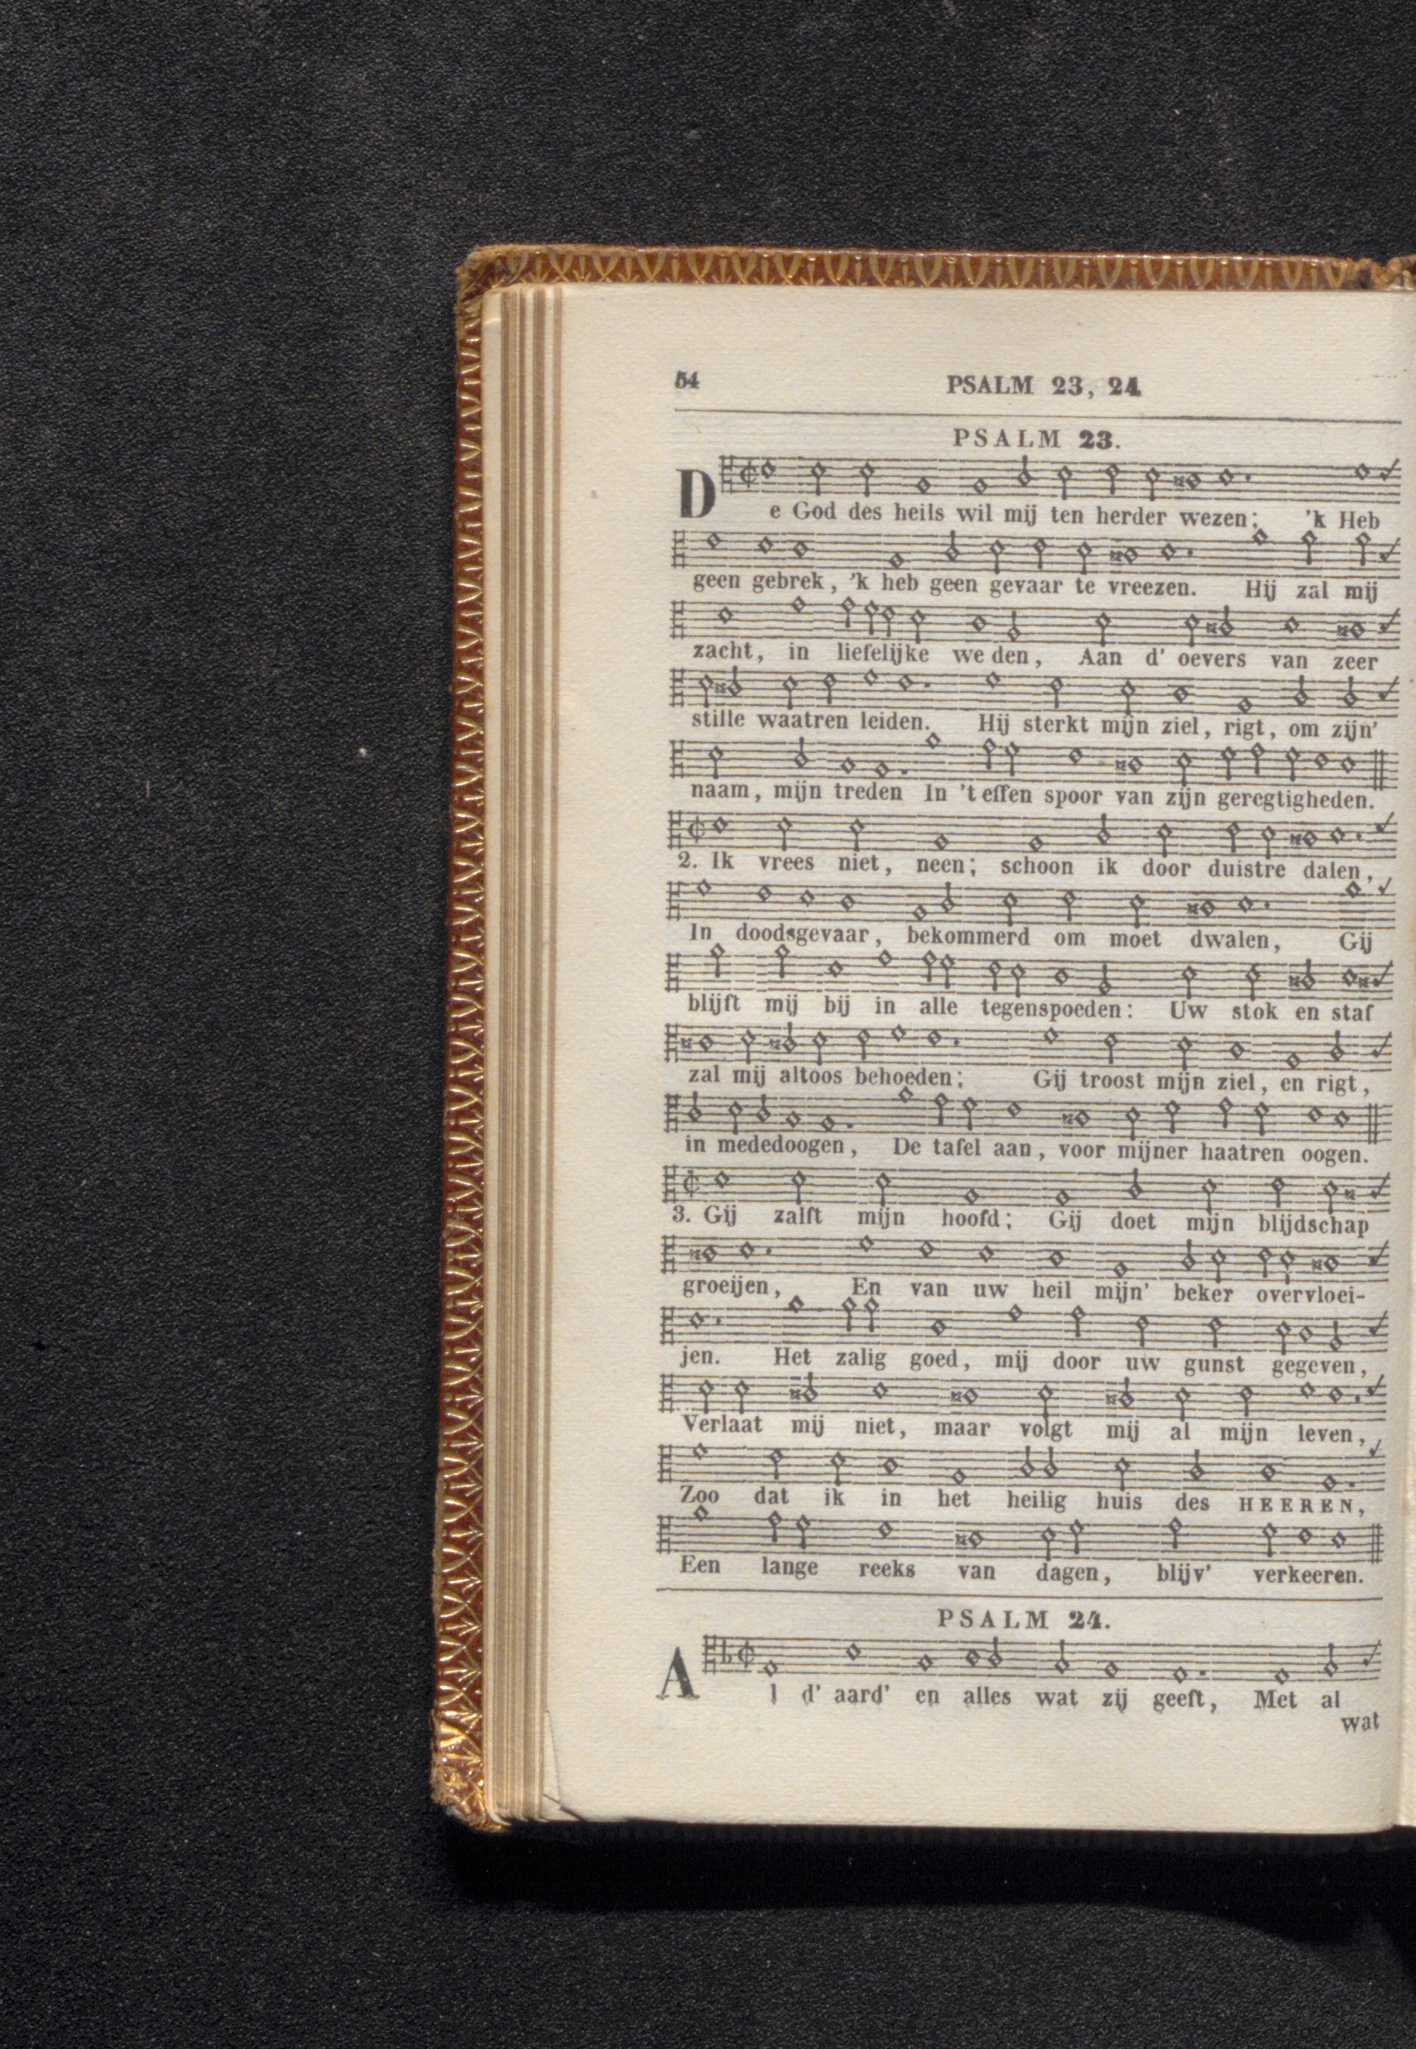 54 PSALM 23, 24
PSALM 23.
De God des heils wil mij ten herder wezen; 'k Heb
geen gebrek, 'k heb geen gevaar te vreezen. Hij zal mij
zacht, in liefelijke we den, Aan d' oevers van zeer
stille waatren leiden. Hij sterkt mijn ziel, rigt, om zijn'
naam, mijn treden In 't effen spoor van zijn geregtigheden.
2. Ik vrees niet, neen; schoon ik door duistre dalen,
In doodsgevaar, bekommerd om moet dwalen, Gij
blijft mij bij in alle tegenspoeden: Uw stok en staf
zal mij altoos behoeden; Gij troost mijn ziel, en rigt,
in mededoogen, De tafel aan, voor mijner haatren oogen.
3. Gij zalft mijn hoofd; Gij doet mijn blijdschap
groeijen, En van uw heil mijn' beker overvloei-
jen. Het zalig goed, mij door uw gunst gegeven,
Verlaat mij niet, maar volgt mij al mijn leven,
Zoo dat ik in het heilig huis des HEEREN,
Een lange reeks van dagen, blijv' verkeeren.
PSALM 24.
Al d' aard' en alles wat zij geeft, Met al
wat